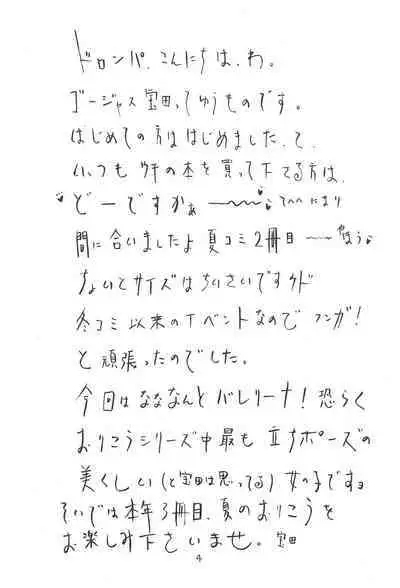 ドロンパ、こんにちは、わ。
ゴージャス宝田ってゆうものです。
はじめての方ははじめました、で、
いつもウチの本を買って下てる方は、
どーですかぁ〜〜♥ てへへ にまり
間に合いましたよ夏コミ2冊目〜〜 やほう♥
ちょいとサイズはちいさいですケド
冬コミ以来のイベントなのでフンガ!
と頑張ったのでした。
今回はなななんとバレリーナ!恐らく
おりこうシリーズ中最も立ちポーズの
美くしい(と宝田は思ってる)女の子です。
そいでは本年3冊目、夏のおりこうを
お楽しみ下さいませ。宝田
4